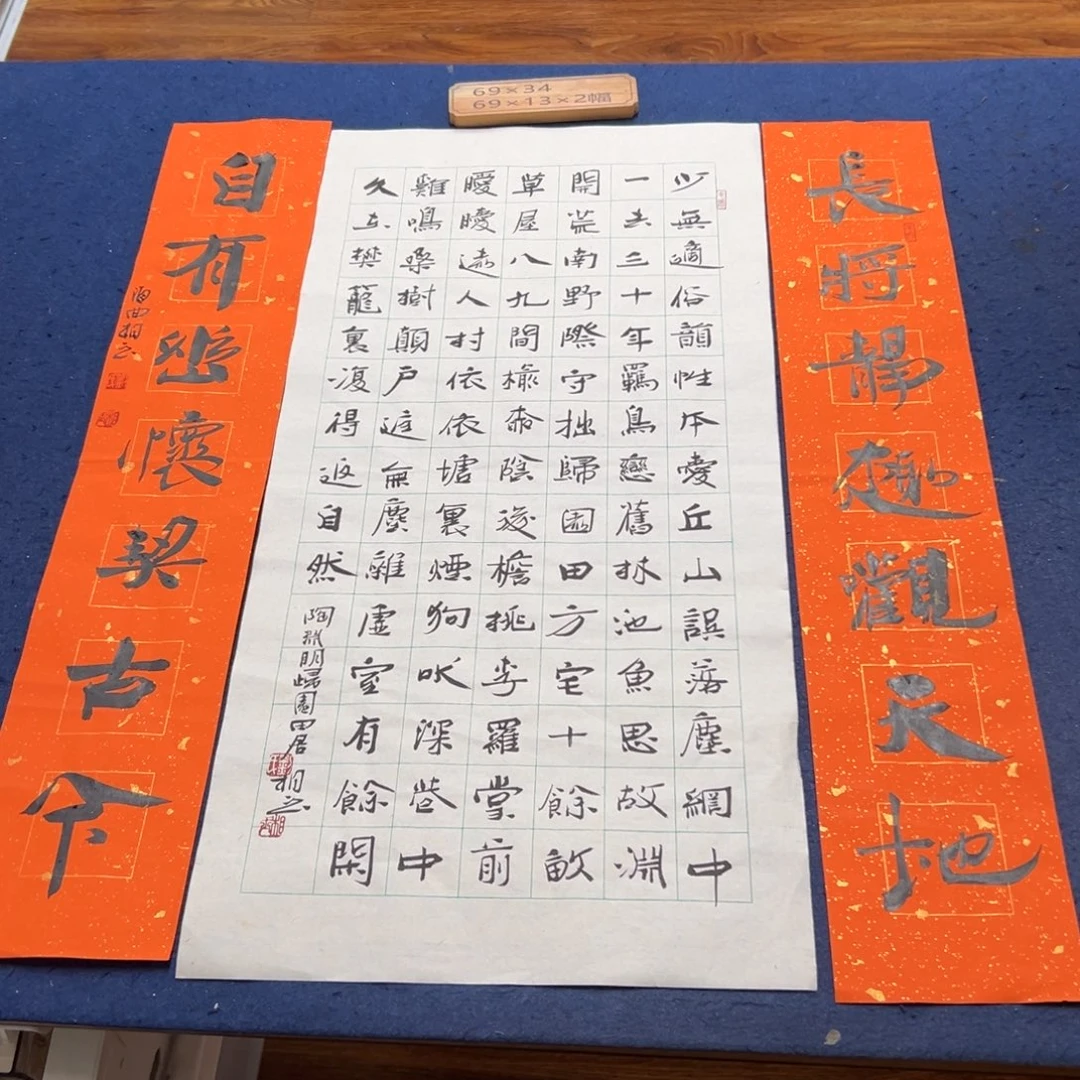 69×34
69×13×2幅
長將靜趣觀天地
少無適俗韻性本愛丘山誤落塵網中
一去三十年羈鳥戀舊林池魚思故淵
開荒南野際守拙歸園田方宅十餘畝
草屋八九間榆柳蔭後檐桃李羅堂前
曖曖遠人村依依墟裏煙狗吠深巷中
雞鳴桑樹顛戶庭無塵雜虛室有餘閑
久在樊籠裏復得返自然
陶淵明歸園田居
自有幽懷契古今